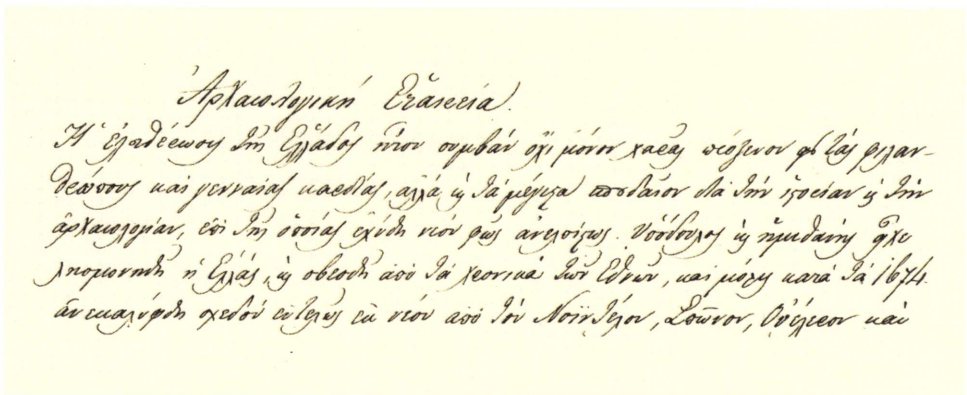 Ἀρχαιολογική Ἑταιρεία.
Ἡ ἐλευθέρωσις τῆς Ἑλλάδος ἦτον συμβάν ὄχι μόνον χαρᾶς πρόξενον εἰς τάς φιλαν-
θρώπους καί γενναίας καρδίας, ἀλλά καί τά μέγιστα σπουδαῖον διά τήν ἱστορίαν καί τήν
ἀρχαιολογίαν, ἐπί τῆς ὁποίας ἐχύθη νέον φῶς ἀνελπίστως. Ὑπόδουλος καί ἡμιθανής εἶχε
λησμονηθῆ ἡ Ἑλλάς, καί σβεσθῆ ἀπό τά χρονικά τῶν Ἐθνῶν, καί μόλις κατά τά 1674.
ἀνεκαλύφθη σχεδόν ἐντελῶς ἐκ νέου ἀπό τόν Νοϊντέλον, Σπῶνον, Οὐέλερον καί